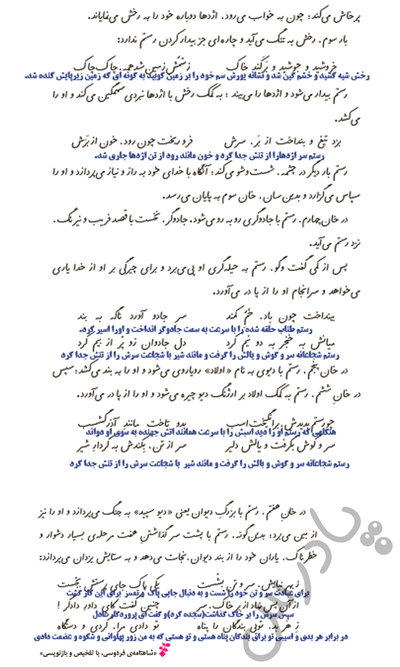 پرخاش می‌کند؛ چون به خواب می‌رود. اژدها دوباره خود را به رخش می‌نمایاند.
بار سوم. رخش به تنگ می‌آید و چاره‌ای جز بیدار کردن رستم ندارد:
خروشید و جوشید و برکند خاک ز نعلش زمین شد همه. چاک‌چاک
رخش شیه کشید و خشم گین شد و نشانه یورش سم خود را بر زمین کوبید به گونه ای که زمین زیرپایش کنده شد.
رستم بیدار می‌شود و اژدها را می‌بیند؛ به کمک رخش با اژدها نبردی سهمگین می‌کند و او را
می‌کشد.
بزد تیغ و بنداخت از بَر. سرش فرو ریخت چون رود. خون از بَرش
رستم سر اژدهارا از تنش جدا کرد و خون مانند رود از تن اژدها جاری شد.
رستم بار دیگر در چشمه. شست‌وشو می‌کند؛ آنگاه با خدای خود به راز و نیاز می‌پردازد و او را
سپاس می‌گزارد و بدین سان. خان سوم به پایان می‌رسد.
در خان چهارم. رستم با جادوگری رو به رو می‌شود. جادوگر. نخست با قصد فریب و نیرنگ.
نزد رستم می‌آید.
پس از کمی گفت وگو. رستم به حیله‌گری او پی می‌برد و برای چیرگی بر او از خدا یاری
می‌خواهد و سرانجام او را از پا در می‌آورد.
بینداخت چون باد. خَمِّ کمند سر جادو آورد ناگه به بند
رستم طناب حلقه شده را با سرعت به سمت جادوگر انداخت و اورا اسیر کرد.
میانش به خنجر به دو نیم کرد دل جادوان زو پر از بیم کرد
رستم شجاعانه سر و گوش و بالش را گرفت و مانند شیر با شجاعت سرش را از تنش جدا کرد
در خان پنجم. رستم با دیوی به نام «اولاد» رویاروی می‌شود و او را به بند می‌کشد؛ سپس
در خان ششم. رستم به کمک اولاد بر ارژنگ دیو چیره می‌شود و او را از پا در می‌آورد.
چو رستم بدیدش. برانگیخت اسب بدو تاخت مانند آذرگشسب
هنگامی که رستم او را دید اسبش را با سرعت همانند اتش جهنده به سوی او دواند
سر و گوش بگرفت و یالش دلیر سر از تن. بکندش به کردار شیر
رستم شجاعانه سر و گوش و بالش را گرفت و مانند شیر با شجاعت سرش را از تنش جدا کرد
در خان هفتم. رستم با بزرگ دیوان یعنی «دیو سپید» به جنگ می‌پردازد و او را نیز
از بین می‌برد؛ بدین‌گونه. رستم با پشت سر گذاشتن هفت مرحله‌ی بسیار دشوار و
خطرناک. یاران خود را از بند دیوان. نجات می‌دهد و به ستایش یزدان می‌پردازد:
ز بهر نیایش. سر و تن بشست یکی پاک جای پرستش بجست
برای عبادت سر و تن خود را شست و به دنبال جایی پاک
از آن پس نهاد از بر خاک. سر چنین گفت کای داور دادگر!
سپس سرش را بر خاک گذاشت(سجده کرد)و گفت ای پروردگار عادل
ز هر بد. تویی بندگان را پناه تو دادی مرا. گردی و دستگاه
در برابر هر بدی و اسیبی تو برای بندگان پناه هستی و تو هستی که به من زور پهلوانی و شکوه و عظمت دادی
«شاهنامه‌ی فردوسی، با تلخیص و بازنویسی»
پادرس